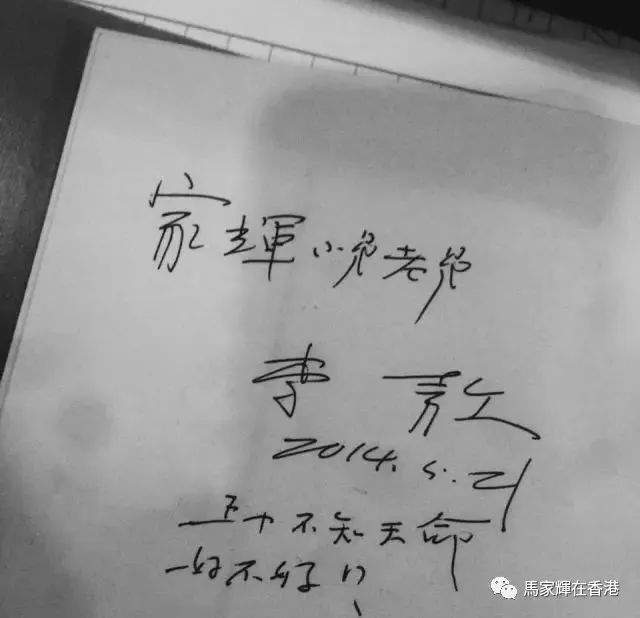 家輝小老
李 敖
2014.5.21
五十不知天命
好不好
馬家輝在香港